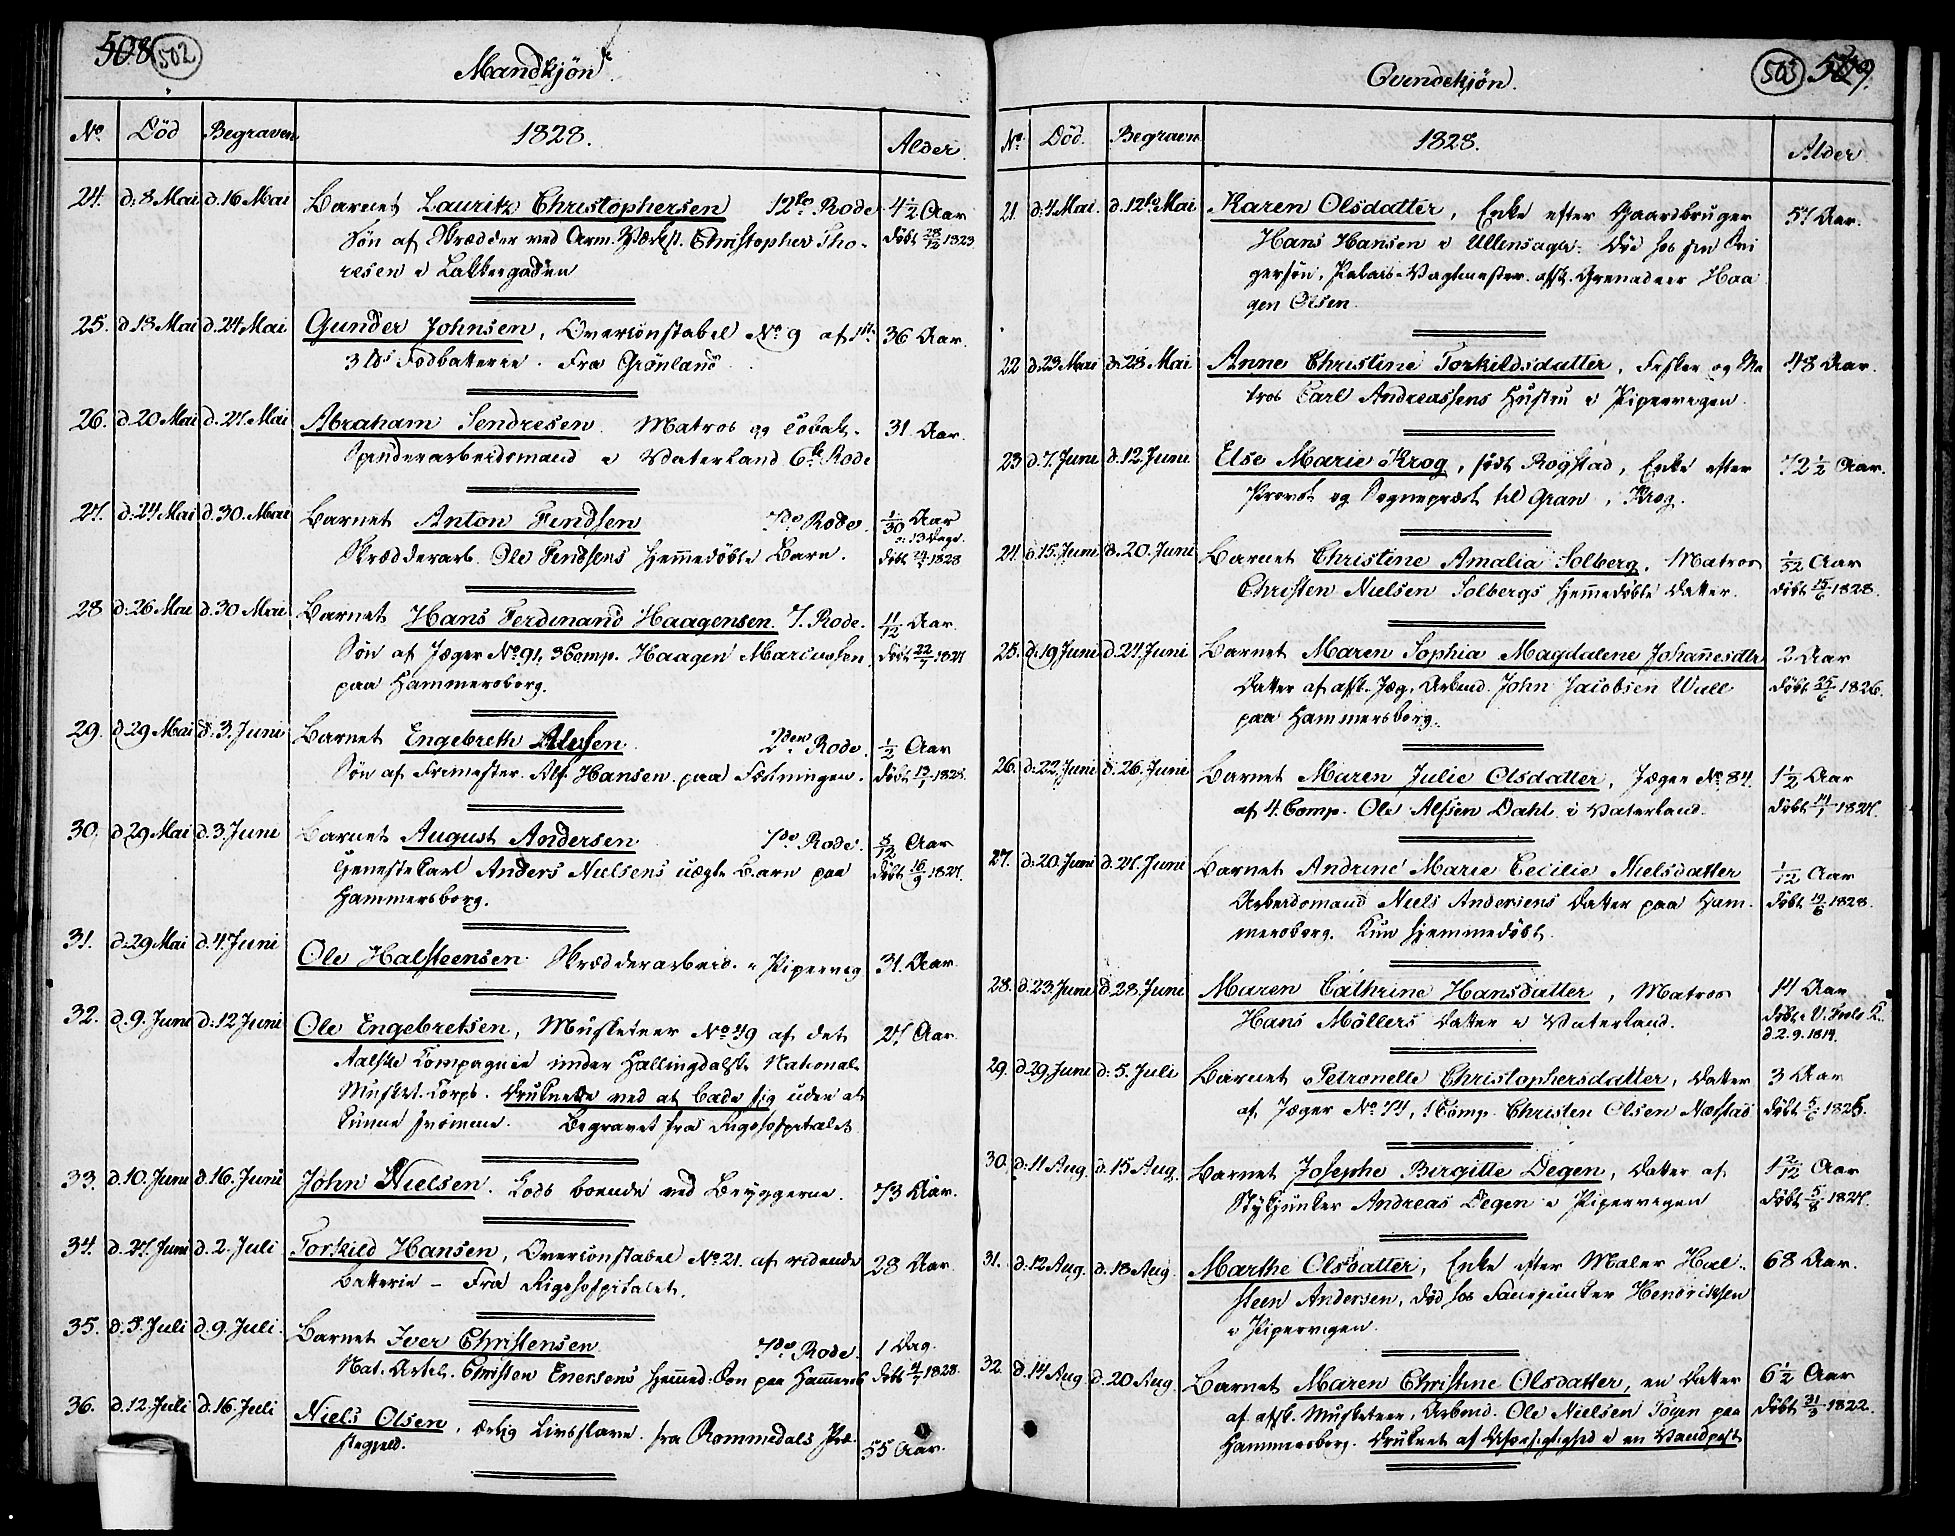 508 502
Mandkjøn.
No. Død Begraven 1828. Alder.
24. d. 8 Mai d. 16 Mai Barnet Lauritz Christophersen 12te Rode 4½ Aar
Søn af Skrædder ved Arm. Værkst. Christopher Tho- døbt 28/12 1823
resen i Lakkergaden
25. d. 18 Mai d. 24 Mai Gunder Johnsen, Overconstabel No. 9 af 1ste 36 Aar.
3 lbs Fodbatterie. Fra Grønland.
26. d. 20 Mai d. 27. Mai Abraham Sendresen. Matros og Tobak- 31 Aar.
Spinderarbeidsmand i Vaterland 6te Rode
27. d. 24 Mai d. 30. Mai Barnet Anton Findsen 7de Rode. 1/30 Aar
Skrædderarb. Ole Findsens hjemmedøbte Barn. døbt 1828
28 d. 26 Mai d. 30 Mai Barnet Hans Ferdinand Haagensen. 7. Rode. 11/12 Aar.
Søn af Jæger No. 91, 3 Comp. Haagen Marcussen døbt 22/7 1827
paa Hammersborg.
29. d. 29 Mai d. 3. Juni Barnet Engebreth Alfsen. 2den Rode. ½ Aar
Søn af Frimester Alf Hansen paa Fæstningen. døbt 13/1 1828.
30. d. 29 Mai d. 3 Juni Barnet August Andersen 7de Rode. 8/12 Aar
Tjenestekarl Anders Nielsens uægte Barn paa døbt 16/9 1827.
Hammersborg.
31. d. 29 Mai d. 4. Juni Ole Halsteensen. Skrædderarbeid. i Pipervig 31. Aar.
32. d. 9. Juni d. 12 Juni Ole Engebretsen, Musketeer No. 49 af det 27 Aar.
Aalske Compagnie under Hallingdalske National
Musket. Corps. Druknede ved at bade sig uden at
kunne svømme. Begravet fra Rigshospitalet
33. d. 10. Juni d. 16. Juni John Nielsen. Lods boende ved Bryggerne. 73 Aar.
34. d. 27. Juni d. 2. Juli Torkild Hansen, Overconstabel No. 21. af ridende 28 Aar.
Batterie - Fra Rigshospitalet.
35. d. 3. Juli d. 9. Juli. Barnet Iver Christensen 7de Rode. 1 Dag.
Nat. Artel. Christen Enersens hjemmed. Søn paa Hammersb døbt 4/7 1828.
36. d. 12. Juli d. 16. Juli Niels Olsen, ærlig Livsslave. fra Rommedals Præ-
stegjeld. 55 Aar.
503 509.
Qvindekjøn.
No. Død. Begraven 1828. Alder
21. d. 4 Mai. d. 12te Mai Karen Olsdatter, Enke efter Gaardbruger 57 Aar.
Hans Hansen i Ullensager. Død hos sin Svi
gersøn, Palais-Vagtmester afsk. Grenadeer Haa
gen Olsen.
22 d. 23 Mai d. 28. Mai Anne Christine Torkildsdatter, Fisker og Ma 48 Aar.
tros Carl Andreassens Hustru i Pipervigen.
23 d. 7. Juni d. 12. Juni Else Marie Krog, født Rogstad, Enke efter 72½ Aar.
Provst og Sognepræst til Gran, Krog.
24. d. 15. Juni d. 20. Juni Barnet Christine Amalia Solberg. Matros 1/52 Aar
Christen Nielsen Solbergs hjemmedøbte Datter. døbt 15/6 1828.
25. d. 19 Juni d. 24 Juni Barnet Maren Sophia Magdalene Johannesdtr 2 Aar
Datter af afsk. Jæg. Arbmd. John Jacobsen Wall døbt 25/6 1826.
paa Hammersborg.
26. d. 22. Juni d. 26. Juni Barnet Maren Julie Olsdatter, Jæger No. 84. 1½ Aar
af 4. Comp. Ole Alfsen Dahl i Vaterland. døbt 14/1 1827.
27. d. 20. Juni d. 27. Juni Barnet Andrine Marie Cecilie Nielsdatter 1/12 Aar
Arbeidsmand Niels Andersens Datter paa Ham- døbt 19/6 1828.
mersborg. Kun hjemmedøbt.
28. d. 23. Juni d. 28. Juni Maren Cathrine Hansdatter, Matros 14 Aar
Hans Möllers Datter i Vaterland. døbt i V. Frels. K.
d. 2. 9. 1814.
29. d. 29 Juni d. 5. Juli Barnet Petronelle Christophersdatter, Datter 3 Aar
af Jæger No. 74, 1 Comp. Christen Olsen Næstad døbt 5/6 1825.
30. d. 11 Aug. d. 15 Aug. Barnet Josephe Birgitte Degen, Datter af 1 2/12 Aar
Stykjunker Andreas Degen i Pipervigen døbt 5/8 1827.
31. d. 12 Aug. d. 18 Aug. Marthe Olsdatter, Enke efter Maler Hal- 68 Aar.
steen Andersen, død hos Fanejunker Hendriksen
i Pipervigen.
32 d. 14 Aug d. 20 Aug. Barnet Maren Christine Olsdatter, en Datter 6½ Aar
af afsk. Musketeer, Arbmd. Ole Nielsen Togen paa døbt 31/3 1822.
Hammersborg. Druknet af Uforsigtighed i en Vandpost